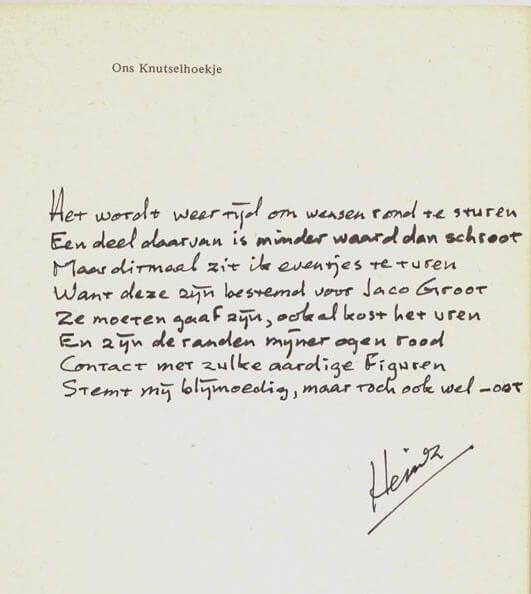 Ons Knutselhoekje
Het wordt weer tijd om wensen rond te sturen
Een deel daarvan is minder waard dan schroot
Maar ditmaal zit ik eventjes te turen
Want deze zijn bestemd voor Jaco Groot
Ze moeten gaaf zijn, ook al kost het uren
En zijn de randen mijner ogen rood
Contact met zulke aardige Figuren
Stemt mij blijmoedig, maar toch ook wel –oot
Heinz